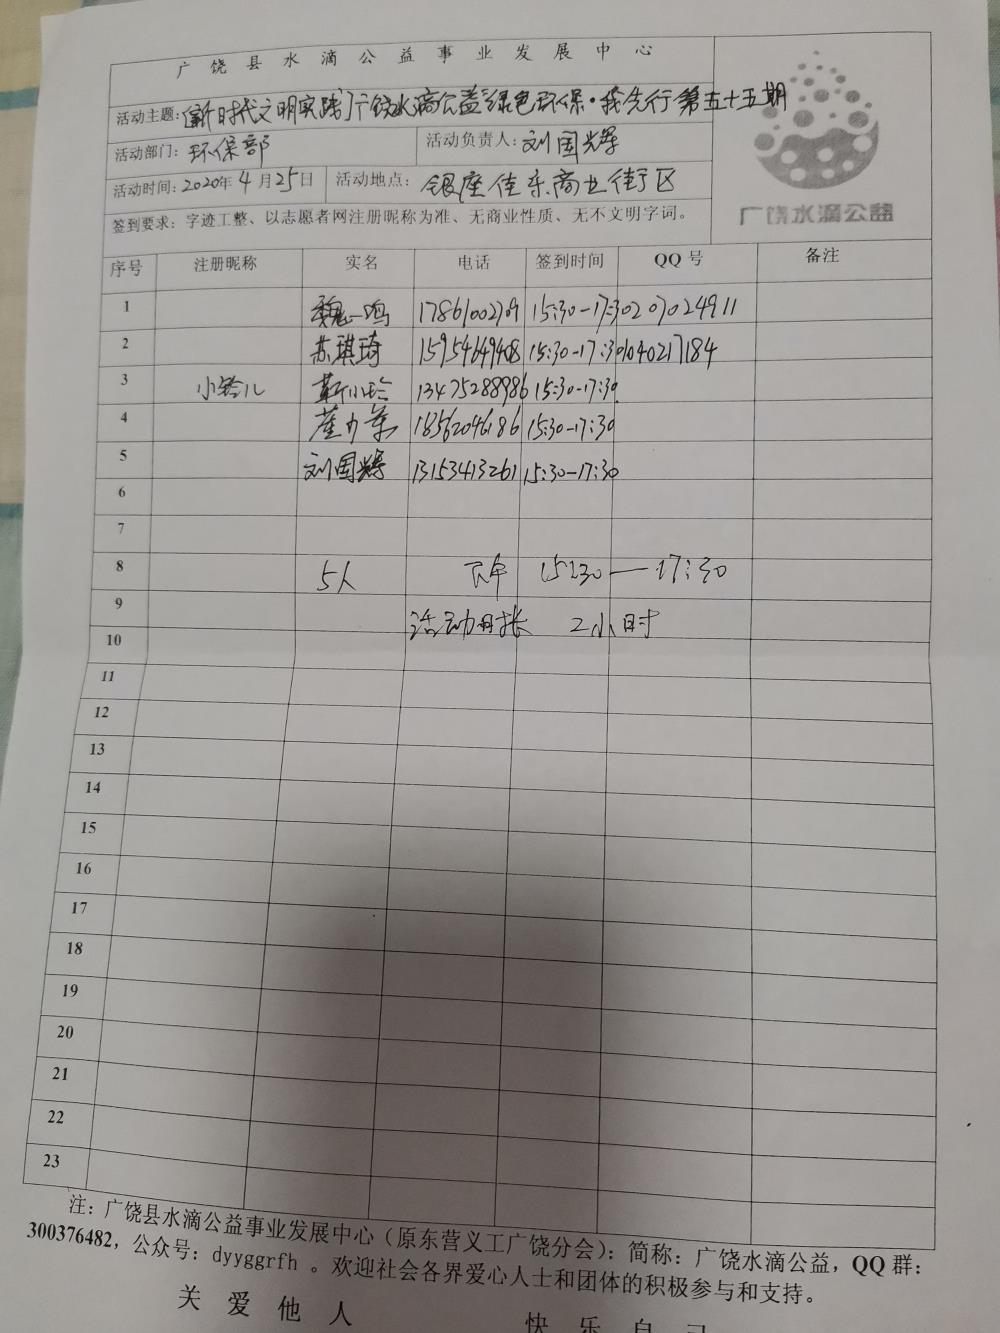 广饶县水滴公益事业发展中心
活动主题:新时代文明实践广饶水滴公益"绿色环保·我先行第五十五期
活动部门: 环保部 活动负责人: 刘国辉
活动时间: 2020年4月25日 活动地点: 银座佳乐商业街区
签到要求: 字迹工整、以志愿者网注册昵称为准、无商业性质、无不文明字词。
广饶水滴公益
序号 注册昵称 实名 电话 签到时间 QQ 号 备注
1 魏一鸣 17861002709 15:30-17:30 207024911
2 苏琪琦 15954649408 15:30-17:30 1040217184
3 小铃儿 靳小玲 13475288986 15:30-17:30
4 18562046186 15:30-17:30
5 刘国辉 13153413261 15:30-17:30
6
7
8 5人 下午 15:30—17:30
9 活动时长 2小时
10
11
12
13
14
15
16
17
18
19
20
21
22
23
注: 广饶县水滴公益事业发展中心（原东营义工广饶分会）: 简称: 广饶水滴公益, QQ 群:
300376482, 公众号: dyyggrfh 。欢迎社会各界爱心人士和团体的积极参与和支持。
关 爱 他 人 快 乐 自 己